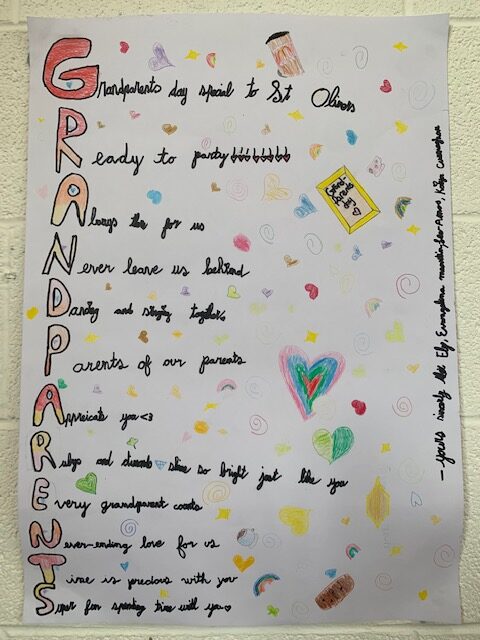 Grandparents day special to St Olivers
Ready to party
Always
for us
Never leave us behind
Dancing and singing together
Parents of our parents
Appreicate you <3
Rubys and diamonds shine so bright just like you
Every grandparent counts
Never-ending love for us
Time is precious with you
Super fun spending time with you
Grand-
Parents
Day
- yours
Elly, Evangelina